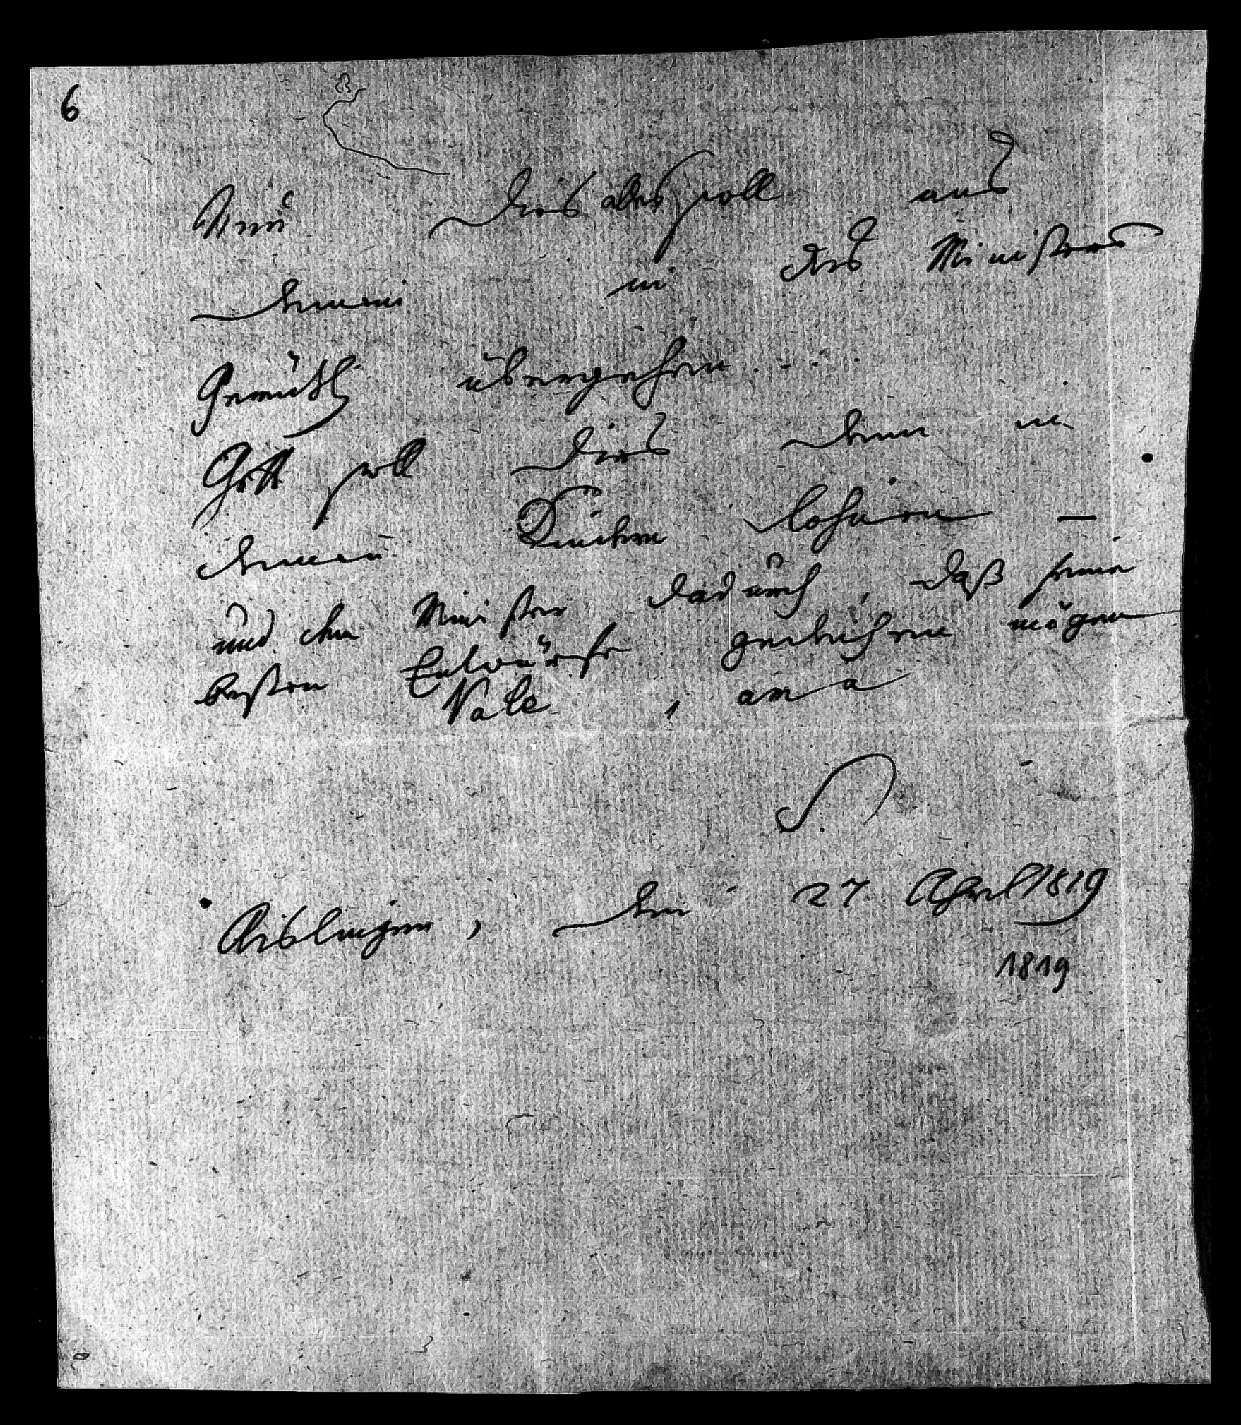 6
Nun dies alles soll aus
deinem in des Ministers
Gemüth übergehen ...
Gott soll dies dann in
deinen Kindern lohnen —
und dem Minister dadurch, daß seine
besten Entwürfe gedeihen mögen
Vale, ama
S.
Aislingen, den 27 April 1819
1819